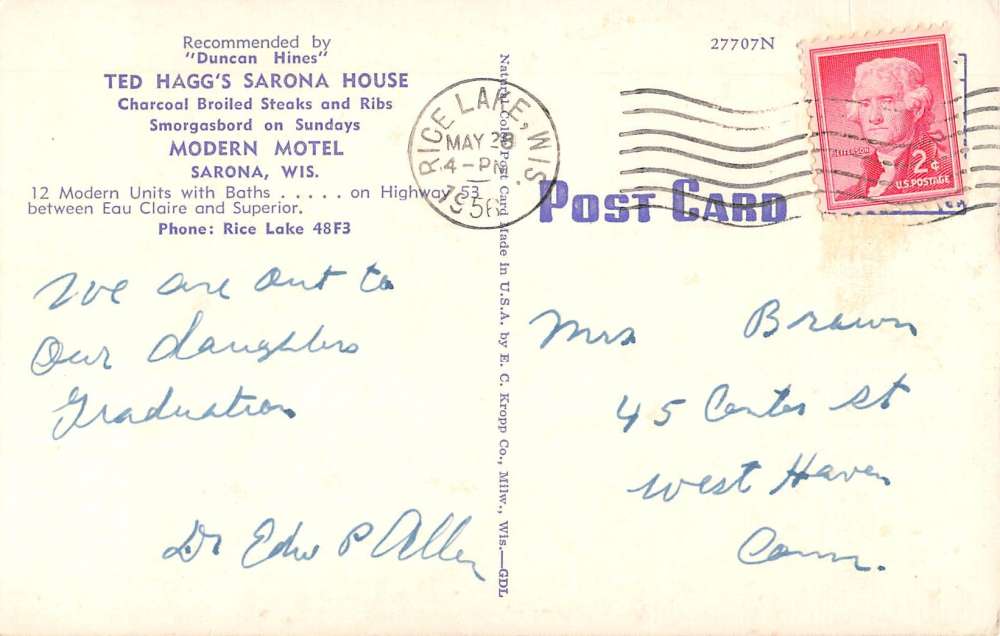 Recommended by
"Duncan Hines"
TED HAGG'S SARONA HOUSE
Charcoal Broiled Steaks and Ribs
Smorgasbord on Sundays
MODERN MOTEL
SARONA, WIS.
12 Modern Units with Baths . . . . . on Highway 53
between Eau Claire and Superior.
Phone: Rice Lake 48F3
We are out to
Our daughters
Graduation
Dr Edw P Allen
Natural Color Post Card Made in U.S.A. by E. C. Kropp Co., Milw., Wis.—GDL
RICE LAKE, WIS.
MAY 28
4-PM
1956
27707N
JEFFERSON
2¢
U.S. POSTAGE
POST CARD
Mrs Brown
45 Center St
West Haven
Conn.